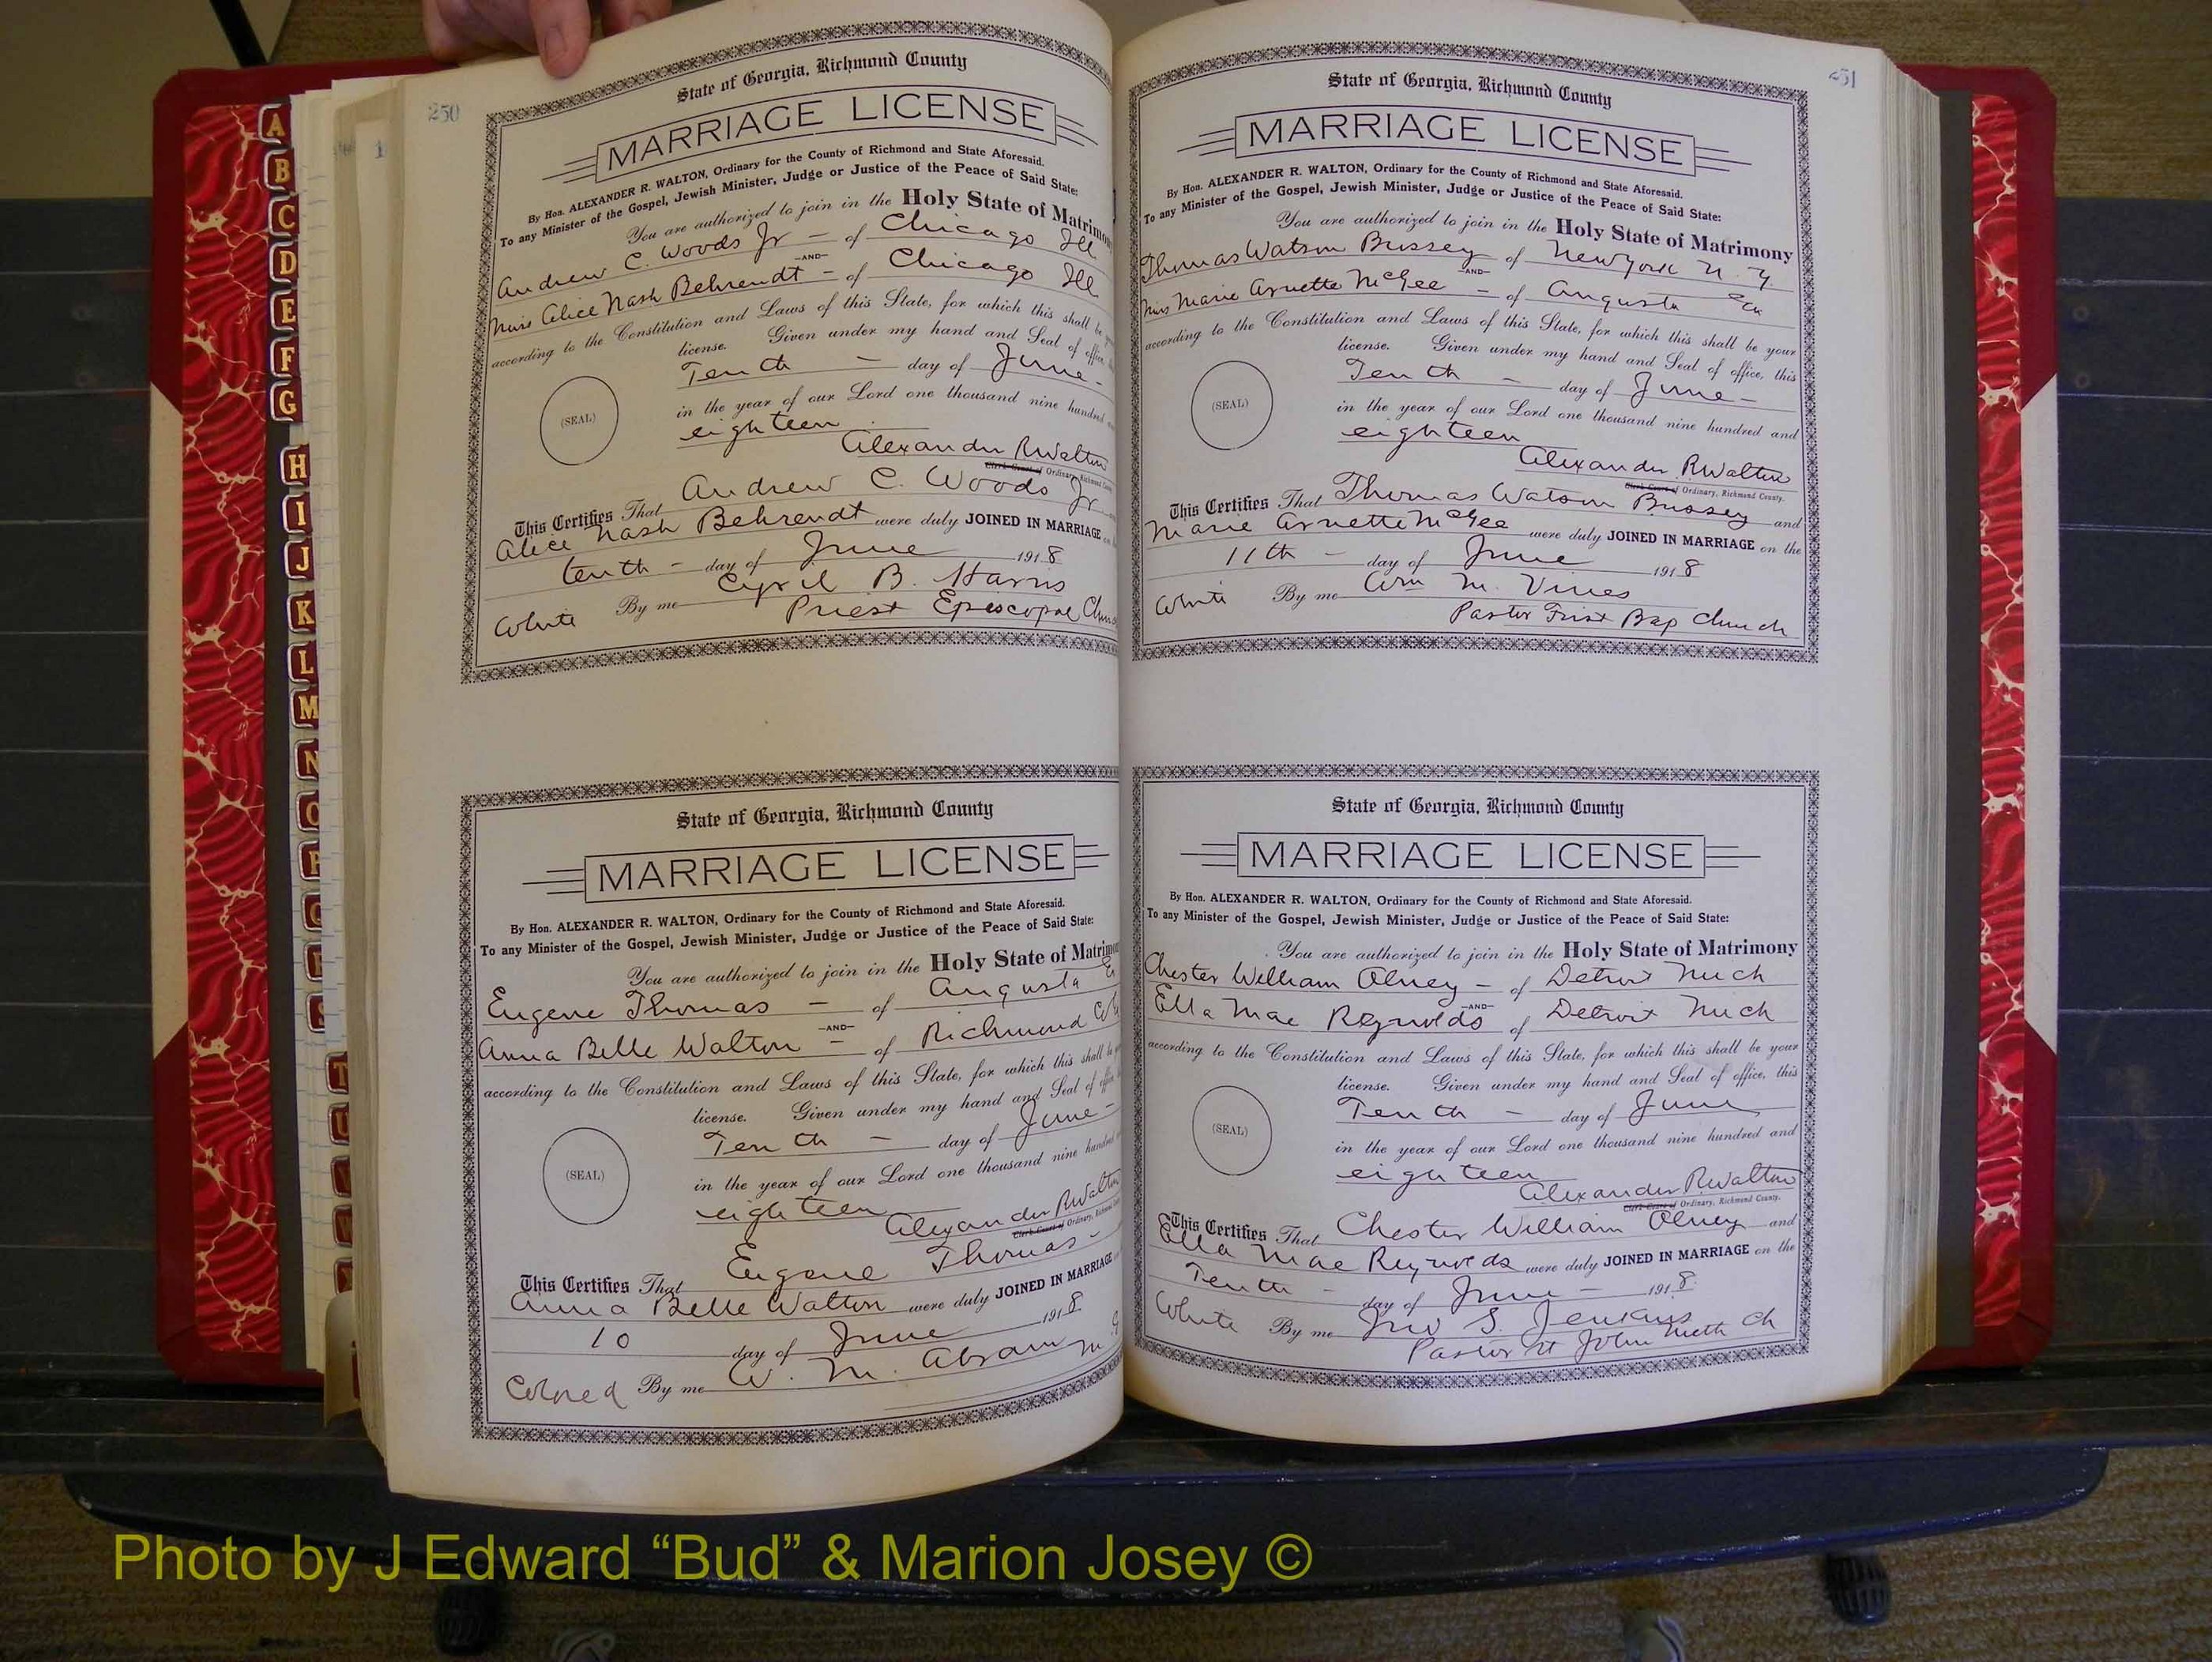 250
State of Georgia, Richmond County
MARRIAGE LICENSE
By Hon. ALEXANDER R. WALTON, Ordinary for the County of Richmond and State Aforesaid.
To any Minister of the Gospel, Jewish Minister, Judge or Justice of the Peace of Said State:
You are authorized to join in the Holy State of Matrimo
Andrew C. Woods Jr - of Chicago Ill
-AND-
Miss Alice Nash Behrendt - of Chicago Ill
according to the Constitution and Laws of this State, for which this shall be
license. Given under my hand and Seal of office,
Tenth - day of June -
(SEAL)
in the year of our Lord one thousand nine hundred
eighteen
Alexander R Walton
Clerk Court of Ordinary, Richmond
This Certifies That Andrew C. Woods Jr
Alice Nash Behrendt were duly JOINED IN MARRIAGE
tenth - day of June 1918
White By me Cyril B. Harris
Priest Episcopal
State of Georgia, Richmond County
MARRIAGE LICENSE
By Hon. ALEXANDER R. WALTON, Ordinary for the County of Richmond and State Aforesaid.
To any Minister of the Gospel, Jewish Minister, Judge or Justice of the Peace of Said State:
You are authorized to join in the Holy State of Matrimo
Eugene Thomas - of Augusta
-AND-
Anna Belle Walton - of Richmond
according to the Constitution and Laws of this State, for which this shall
license. Given under my hand and Seal of
Tenth - day of June -
(SEAL)
in the year of our Lord one thousand nine
eighteen
Alexander R Walton
Clerk Court of Ordinary,
This Certifies That Eugene Thomas -
Anna Belle Walton were duly JOINED IN MARRIAGE
10 day of June 1918
Colored By me W. M. Abram M
251
State of Georgia, Richmond County
MARRIAGE LICENSE
By Hon. ALEXANDER R. WALTON, Ordinary for the County of Richmond and State Aforesaid.
To any Minister of the Gospel, Jewish Minister, Judge or Justice of the Peace of Said State:
You are authorized to join in the Holy State of Matrimony
Thomas Watson Bussey of New York N. Y.
-AND-
Miss Marie Arnette McGee - of Augusta Ga
according to the Constitution and Laws of this State, for which this shall be your
license. Given under my hand and Seal of office, this
Tenth - day of June -
(SEAL)
in the year of our Lord one thousand nine hundred and
eighteen
Alexander R Walton
Clerk Court of Ordinary, Richmond County.
This Certifies That Thomas Watson Bussey and
Marie Arnette McGee were duly JOINED IN MARRIAGE on the
11th - day of June 1918
White By me Wm M. Vines
Pastor First Bap Church
State of Georgia, Richmond County
MARRIAGE LICENSE
By Hon. ALEXANDER R. WALTON, Ordinary for the County of Richmond and State Aforesaid.
To any Minister of the Gospel, Jewish Minister, Judge or Justice of the Peace of Said State:
You are authorized to join in the Holy State of Matrimony
Chester William Olney - of Detroit Mich
-AND-
Ella Mae Reynolds of Detroit Mich
according to the Constitution and Laws of this State, for which this shall be your
license. Given under my hand and Seal of office, this
Tenth - day of June
(SEAL)
in the year of our Lord one thousand nine hundred and
eighteen
Alexander R Walton
Clerk Court of Ordinary, Richmond County.
This Certifies That Chester William Olney and
Ella Mae Reynolds were duly JOINED IN MARRIAGE on the
Tenth - day of June - 1918
White By me Jno S. Jenkins
Pastor St John Meth Ch
A
B
C
D
E
F
G
H
I
J
K
L
M
N
O
P
Q
R
S
T
U
V
W
Photo by J Edward “Bud” & Marion Josey ©